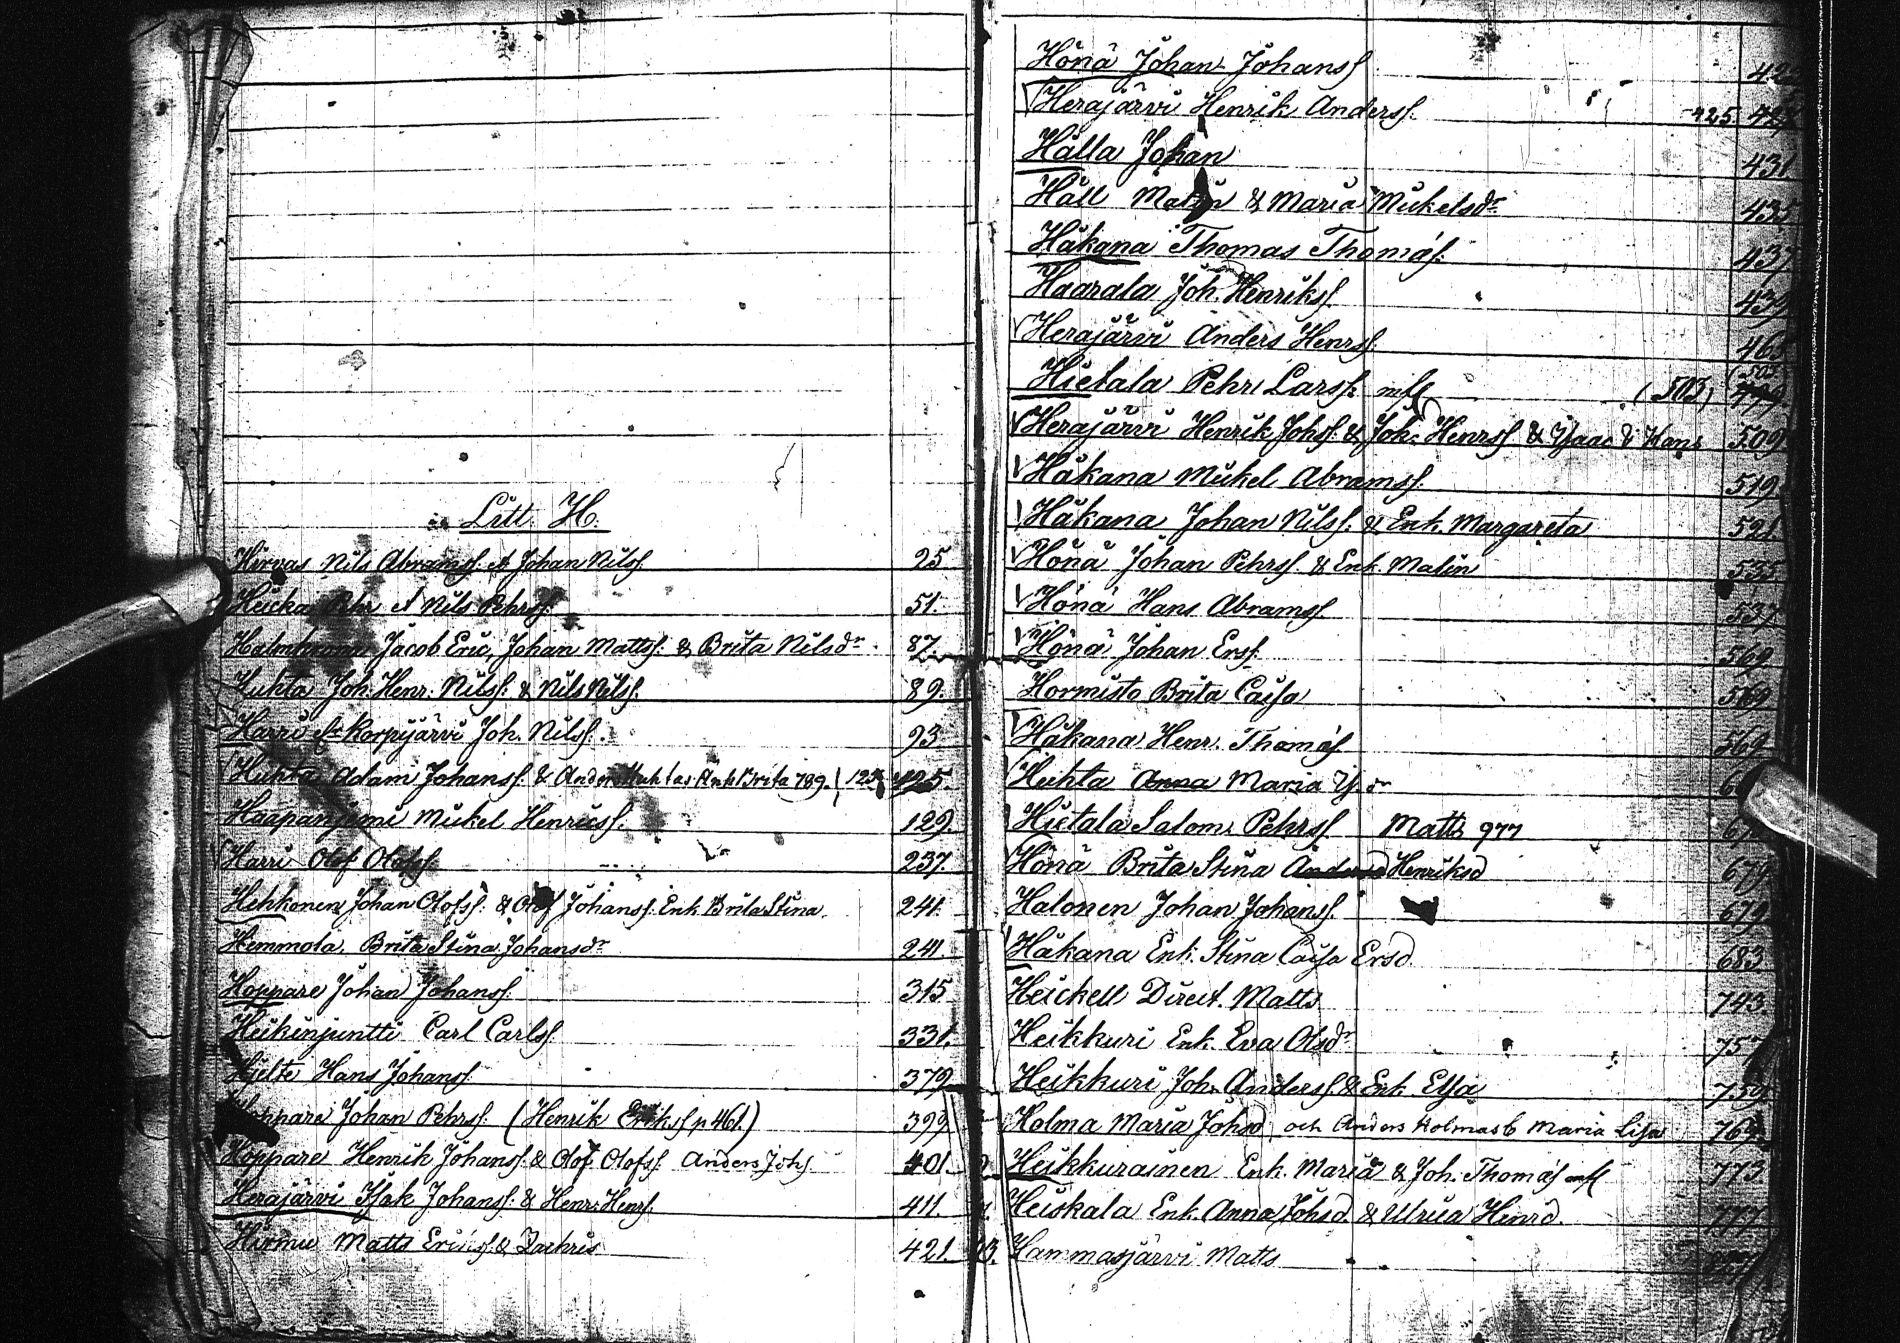 Litt. H.
Hirvas Nils Abramsf. & Johan Nilsf. 25
Heicka Pehr & Nils Pehrsf. 51.
Jacob Eric, Johan Mattsf. & Brita Nilsdr 87
Huhta Joh. Henr. Nilsf. & Nils Nilsf. 89.
Harri & Korpijärvi Joh. Nilsf. 93
Huhta Adam Johansf. & Anders Huhtas Enk. Brita 789. 125 425.
Haapaniemi Mickel Henricsf. 129.
Harri Olof Olofsf. 237.
Hehkonen Johan Olofsf. & Olof Johansf. Enk. Brita Stina. 241.
Hemmola. Brita Stina Johansdr 241.
Hoppare Johan Johansf. 315
Heikinjuntti Carl Carlsf. 331.
Hjelte Hans Johansf. 379
Hoppare Johan Pehrsf. (Henrik Eriksf p 461.) 399
Hoppare Henrik Johansf. & Olof Olofsf. Anders Johsf. 401.
Herajärvi Isak Johansf. & Henr. Henrsf. 411.
Hirmu Matts Ericsf. & Zachris 421.
Hönä Johan Johansf
Herajärvi Henrik Andersf. 425
Hälla Johan 431
Häll Matts & Maria Mickelsdr 435
Häkana Thomas Thomasf. 437
Haarala Joh. Henriksf. 439
Herajärvi Anders Henrsf. 465
Hietala Pehr Larsf. mfl (503) (503.
Herajärvi Henrik Johsf. & Joh. Henrsf & Isaac & Hans 509
Häkana Mickel Abramsf. 519
Häkana Johan Nilsf. & Enk. Margareta 521.
Hönä Johan Pehrsf & Enk. Malin 535
Hönä Hans Abramsf. 537
Hönä Johan Ersf. 569
Hormisto Brita Caisa 569
Häkana Henr. Thomasf 569
Huhta Anna Maria
Hietala Salom. Pehrsf. Matts 977
Hönä Brita Stina Andersd Henriksd 679
Halonen Johan Johansf. 679
Häkana Enk. Stina Caisa Ersd. 683
Heickell Direct. Matts 743
Heikkuri Enk. Eva Olsdr
Heikkuri Joh. Andersf. & Enk. Elsa 759
Holma Maria Johsd och Anders Holmas Maria Lisa
Heikkurainen Enk. Maria & Joh. Thomasf mfl 773
Heiskala Enk. Anna Johsd. & Ulrica Henrd. 777
Hammasjärvi Matts